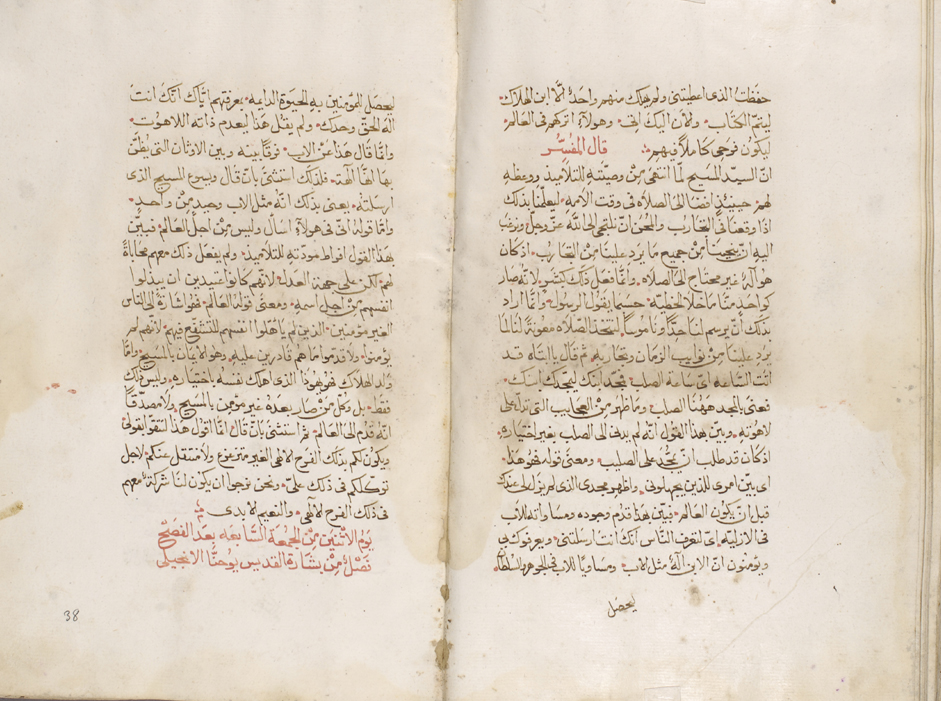 حفظتُ الذى اعطيتنى ولم يهلك منهم واحدٌ الّا ابن الهلاك
ليتمّ الكتاب ولأن اليك آتى وهولآءِ اتركهم فى العالم
ليكون فرحى كاملاً فيهم قال المفسّر
انّ السيّد المسيح لمّا انتهى مِنْ وصيّته للتلاميذ ووعظهِ
لهم حينيذٍ افضا الى الصلاه فى وقت الآمه ليعلّمنا بذلك
اذا وقعنا فى التجارب والمحن انّ نلتجى الى اللّه عزّ وجلّ ونرغب
اليه انّ ينجينا مِنْ جميع مَا يَرد علينا مِنْ التجارب اذ كان
هو آلهٌ غير محتاج الى الصلاه وانّما فعل ذلك كبشرٍ لانّه صار
كواحدٍ منّا ما خلا الخطيه حسبما يقول الرسول وانّما اراد
بذلك أنّ يرسم لنا حدّاً وناموساً لنتخذ الصّلاه معونةً لنا لما
يرد علينا مِنْ نوايب الزمان وتجاربهِ ثم قال يا ابتاه قد
اتت السّاعه اىّ ساعة الصلب مجّد ابنك ليمجّدك ابنك
فعنى بالمجد ههُنا الصلب وما ظهر مِنْ العجايب التى تدلّ على
لاهوته وبيّن هذا القول انّه لم يدنى الى الصلب بغير اختياره
اذ كان قد طلب انّ يمجّد على الصليب ومعنى قوله فهو هذا
اى بيّن امرى للذين يجهلونى واظهر مجدى الذى لم يزل لى عندك
قبل انّ يكون العالم فبيّن بهذا قدم وجوده ومساواته للاب
فى الازليّه اىّ لتعرف النّاس انّك انت ارسلتنى ويعرفوك بى
ويؤمنون انّ الابن آلهٌ مثل الاب ومساوياً للاب فى الجوهر والسّلطان
ليحصل
ليحصل للمؤمنين به الحيوة الدايمه بمعرفتهم ايّاك انّك انت
اله الحقّ وحدك ولم يقل هذا ليعدم ذاته اللاهوت
وانّما قال هذا عن الاب فرقاً بينه وبين الاوثان التى يُظنّ
بها انّها آلهة فلذلك استثنى بانّ قال ويسوع المسيح الذى
ارسلته يعنى بذلك انّه مثل الاب وحيد مِنْ واحد
وامّا قوله انّى فى هولآءِ اسأل وليس مِنْ اجل العالم فبيّن
بهذا القول افراط مودّته للتلاميذ ولم يفعل ذلك معهم محاباةً
لهم لكن على جهة العدل لانّهم كانوا عتيدين ان يبذلوا
انفسهم مِنْ اجل اسمهِ ومعنى قوله العالم فهو اشارةً الى الناس
الغير مؤمنين الذين لم يأهّلوا انفسهم للتشفّع فيهم لأنهم لم
يؤمنوا ولا قدّموا ما هم قادرين عليهِ وهو الايمان بالمسيح وامّا
ولد الهلاك فهو يهوذا الذى اهلك نفسه باختياره وليس ذلك
فقط بل وكلّ مَنْ صار بعدهُ غير مؤمن بالمسيح ولا مصدّقاً
انّه قدم الى العالم ثم استثنى بانّ قال انّما اقول هذا لتفهموا قولى
ويكون لكم بذلك الفرح الالاهى الغير متزعزع ولا منتقل عنكم لاجل
توكّلكم فى ذلك علىّ ونحن نرجوا ان يكون لنا شركةً معهم
فى ذلك الفرح الآلهى والنعيم الابدى
يوم الاثنين مِنْ الجمعة السّابعه بعد الفصح
فصلٌ مِنْ بشارة القديس يوحنّا الانجيلى
38